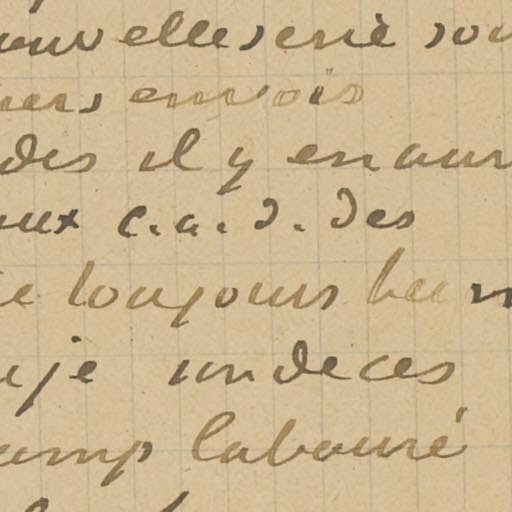 nouvelle serie sou
iers envois
des il y en aur
aux c.a.d. des
e toujours bien
uje un de ces
amp labouré